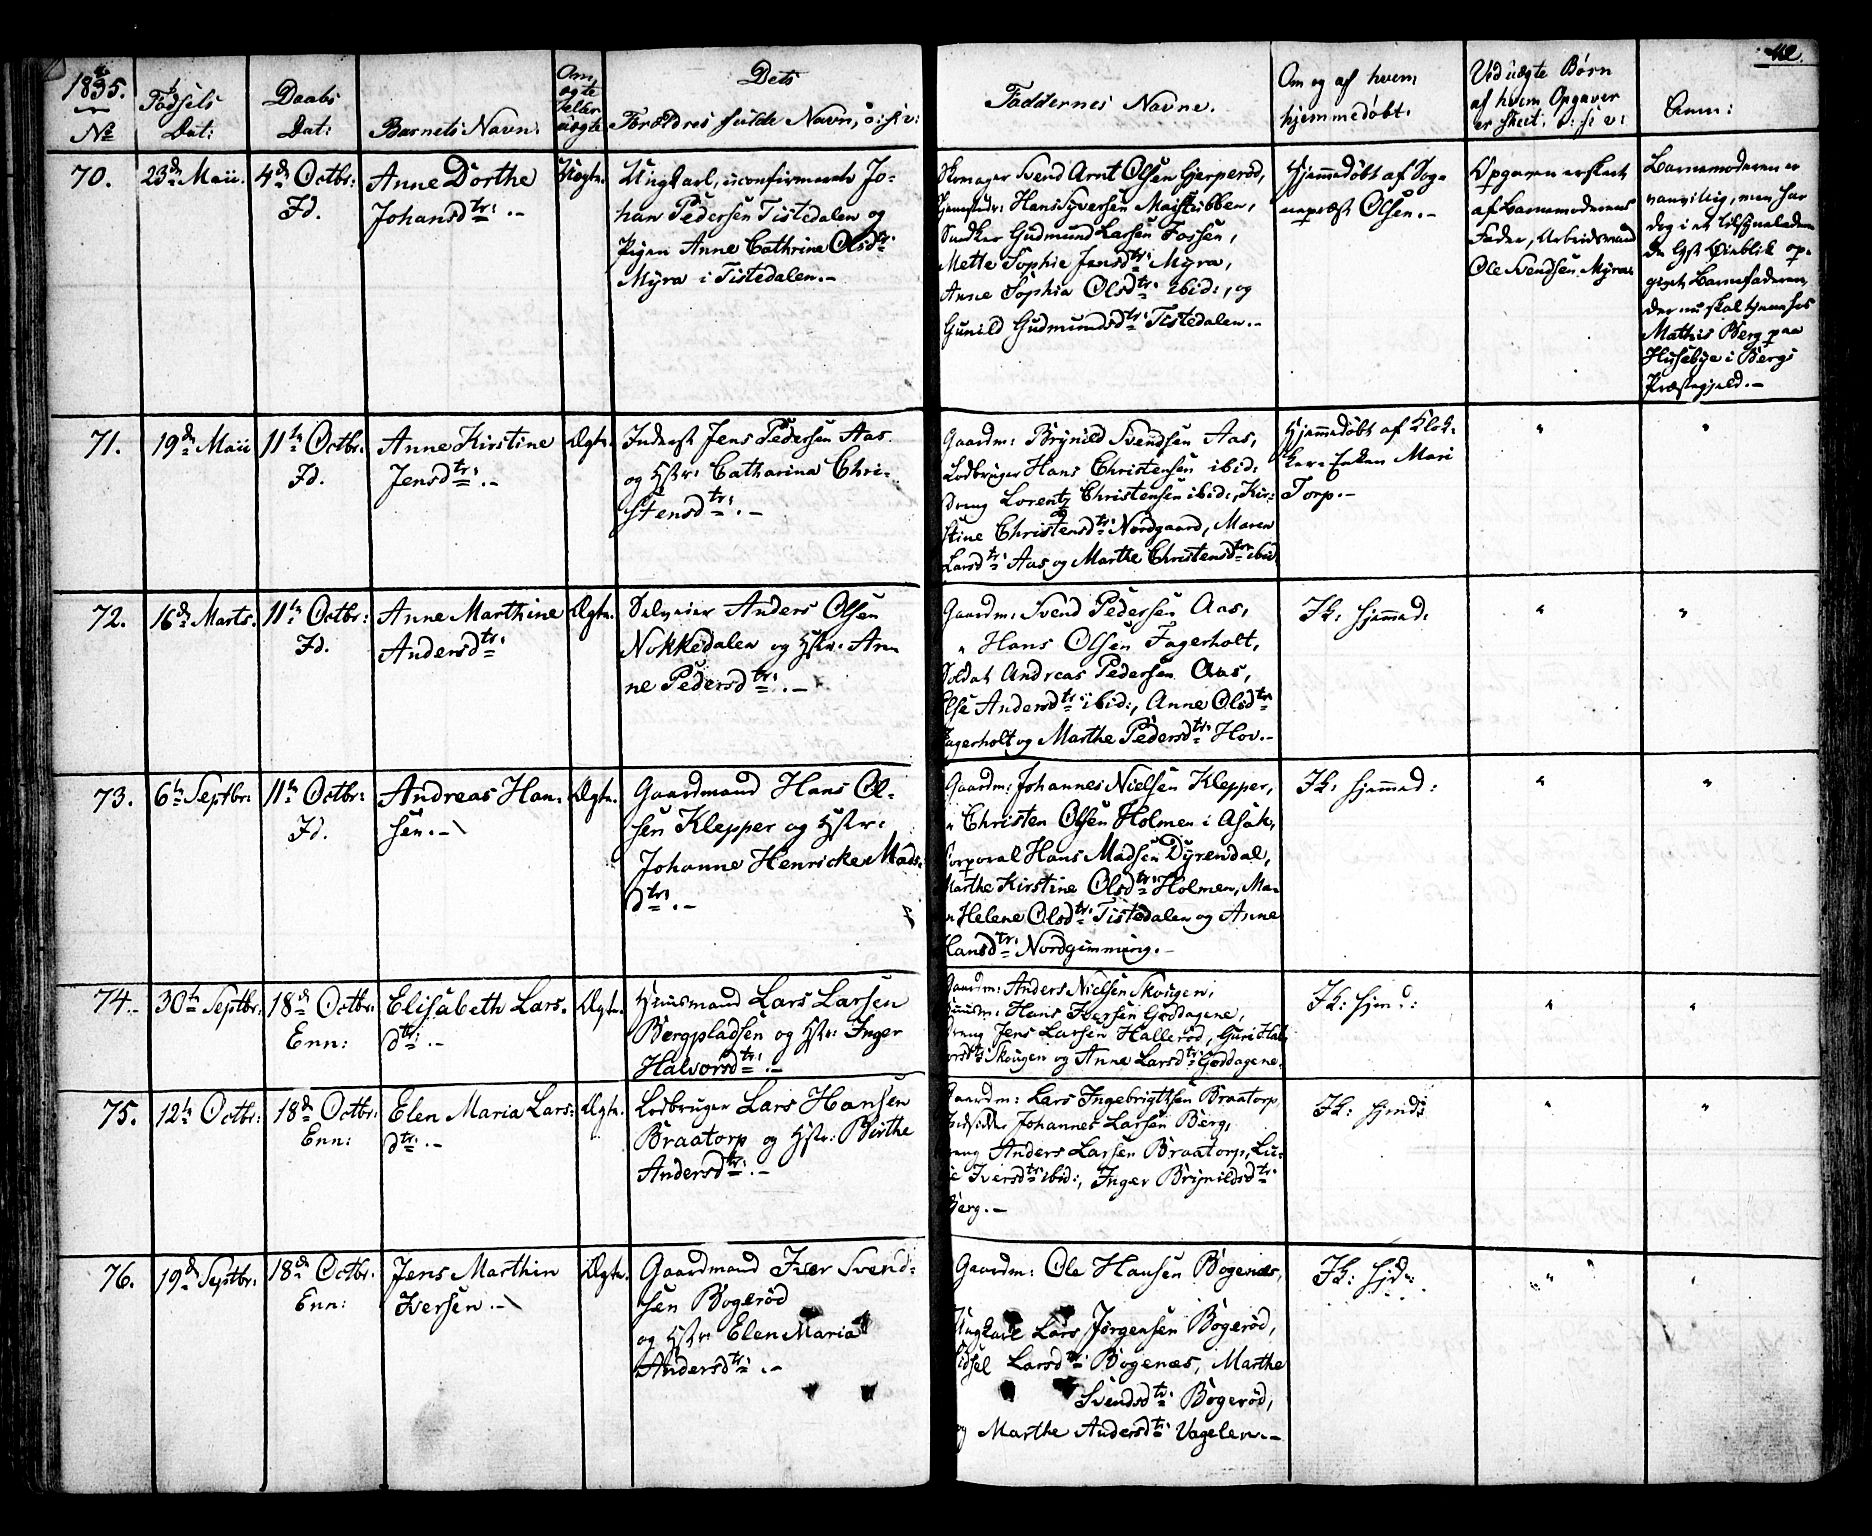 1835.
№
Fødsels
Dat:
Daabs
Dat:
Barnets Navn.
Om
ægte
eller
uægte
Dets
Forældres fulde Navn, o: s: v:
Faddernes Navne.
Om og af hvem
hjemmedøbt.
Ved uægte Børn
af hvem Opgaven
er skeet. o: s: v:
Anm:
70.
23de Maii.
4de Octbr:
Fd.
Anne Dorthe
Johansdtr: .-
Uægte.
Ungkarl, uconfirmeret Jo-
han Pedersen Tistedalen og
Pigen Anne Cathrine Olsdtr:
Myra i Tistedalen.-
Skomager Svend Arnt Olsen Gjerperød,
Hans Syversen Majstubben,
Snedker Gudmund Larsen Fossen,
Mette Sophie Jensdtr: Myra,
Anne Sophia Olsdtr: ibid:, og
Gunild Gudmundsdtr: Tistedalen.-
Hjemmedøbt af Sog-
nepræst Olsen.-
Opgaven er skeet
af Barnemoderens
Fader, Arbeidsmand
Ole Svendsen Myra.
Barnemoderen er
vanvittig, men har
dog i et
Øieblik op-
givet Barnefaderen,
der nu skal tjene hos
Mathis Berg paa
Husebye i Bergs
Præstegjeld.-
71.
19de Maii
11te Octbr:
Fd.
Anne Kirstine
Jensdtr: .-
Ægte.
Inderst Jens Pedersen Aas
og Hstr: Catharina Chri-
stensdtr: .-
Gaardm: Brynild Svendsen Aas,
Lodbruger Hans Christensen ibid:
Dreng Lorentz Christensen ibid:, Kir-
stine Christensdtr: Nordgaard, Maren
Larsdtr: Aas og Marthe Christensdtr: ibid.
Hjemmedøbt af Klok-
ker-Enken Mari
Torp.-
"
"
72.
16de Marts.
11te Octbr:
Fd.
Anne Marthine
Andersdtr:
Ægte.
Selveier Anders Olsen
Nokkedalen og Hstr: An-
ne Pedersdtr: .-
Gaardm: Svend Pedersen Aas,
" Hans Olsen Fagerholt,
Soldat Andreas Pedersen Aas,
Else Andersdtr: ibid:, Anne Olsdtr
Fagerholt og Marthe Pedersdtr: Hov.-
Ik: hjemmed:
"
"
73.
6te Septbr:
11te Octbr:
Fd.
Andreas Han-
sen.-
Ægte.
Gaardmand Hans Ol-
sen Klepper og Hstr:
Johanne Henricke Mads-
dtr: .-
Gaardm: Johannes Nielsen Klepper,
" Christen Olsen Holmen i Asak,
Corporal Hans Madsen Dyrendal,
Marthe Kirstine Olsdtr: Holmen, Ma-
Helene Olsdtr: Tistedalen og Anne
Hansdtr: Nordgimming.-
Ik: hjemmed:
"
"
74.-
30te Septbr:
18de Octbr:
Enn:
Elisabeth Lars-
dtr: .-
Ægte.
Huusmand Lars Larsen
Bergpladsen og Hstr: Inger
Halvorsdtr: .-
Gaardm: Anders Nielsen Skougen,
Huusm: Hans Iversen Goddagene,
Dreng Jens Larsen Hallerød, Guri Hal-
vorsdtr: Skougen og Anne Larsdtr: Goddagene.
Ik: hjemd:
"
"
75.
12te Octbr:
18de Octbr:
Enn:
Elen Maria Lars-
dtr: .-
Ægte.
Lodbruger Lars Hansen
Braatorp og Hstr: Birthe
Andersdtr: .-
Gaardm: Lars Ingebrigtsen Braatorp,
Johannes Larsen Berg,
Dreng Anders Larsen Braatorp, Lu-
Iversdtr: ibid:, Inger Brynildsdtr:
Berg.-
Ik: hjemd:
"
"
76.
19de Septbr:
18de Octbr:
Enn:
Jens Marthin
Iversen.-
Ægte.
Gaardmand Iver Svend-
sen Bogerød
og Hstr: Elen Maria
Andersdtr: .-
Gaardm: Ole Hansen Bogenæs,
Ungkarl Lars Jørgensen Bogerød,
Sidsel Larsdtr: Bogenæs, Marthe
Svendsdtr: Bogerød,
og Marthe Andersdtr: Vagelen.-
Ik: hjd:
"
"